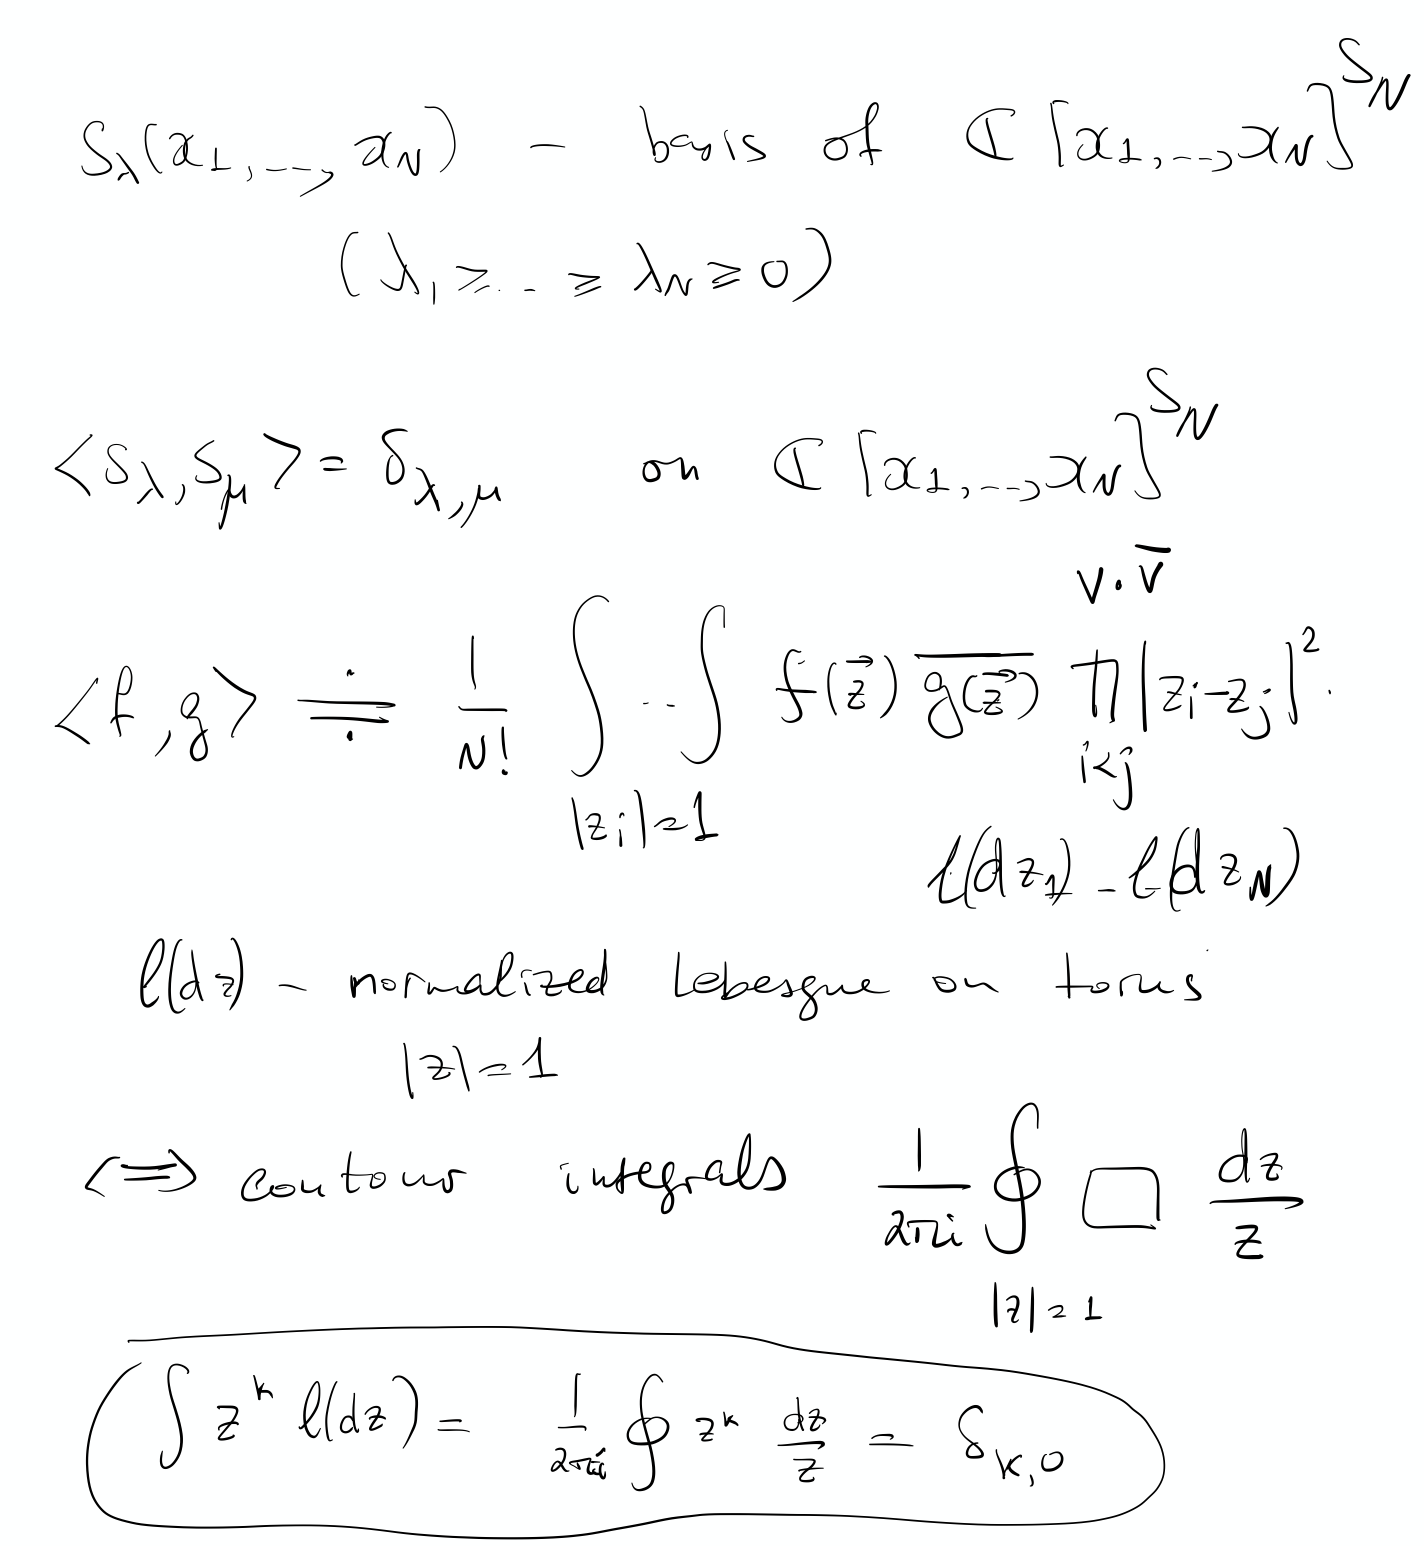 s_λ(x_1, ..., x_N) – basis of ℂ[x_1, ..., x_N]^{S_N}
(λ_1 ≥ ... ≥ λ_N ≥ 0)
<s_λ, s_μ> = δ_{λ,μ} on ℂ[x_1, ..., x_N]^{S_N}
V · V̄
<f, g> ≑ 1/N! ∫ ... ∫_{|z_i|=1} f(z⃗) \overline{g(z⃗)} ∏_{i<j} |z_i - z_j|^2 ·
l(dz_1) ... l(dz_N)
l(dz) – normalized Lebesgue on torus
|z| = 1
⟺ contour integrals 1/(2πi) ∮_{|z|=1} □ dz/z
∫ z^k l(dz) = 1/(2πi) ∮ z^k dz/z = δ_{k,0}